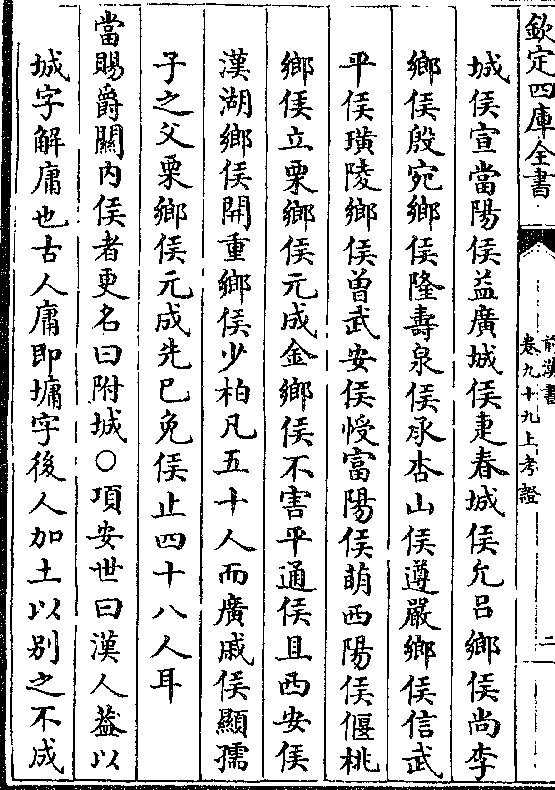 欽定四庫全書
前漢書
卷九十九上考證
二
城侯宣當陽侯益廣城侯疌春城侯允呂鄉侯尚李
鄉侯殷宛鄉侯隆壽泉侯承杏山侯遵嚴鄉侯信武
平侯璜陵鄉侯曾武安侯慢富陽侯萌西陽侯偃桃
鄉侯立栗鄉侯元成金鄉侯不害平通侯且西安侯
漢湖鄉侯開重鄉侯少柏凡五十人而廣戚侯顯孺
子之父栗鄉侯元成先已免侯止四十八人耳
當賜爵關內侯者更名曰附城○項安世曰漢人葢以
城字解庸也古人庸即墉字後人加土以别之不成